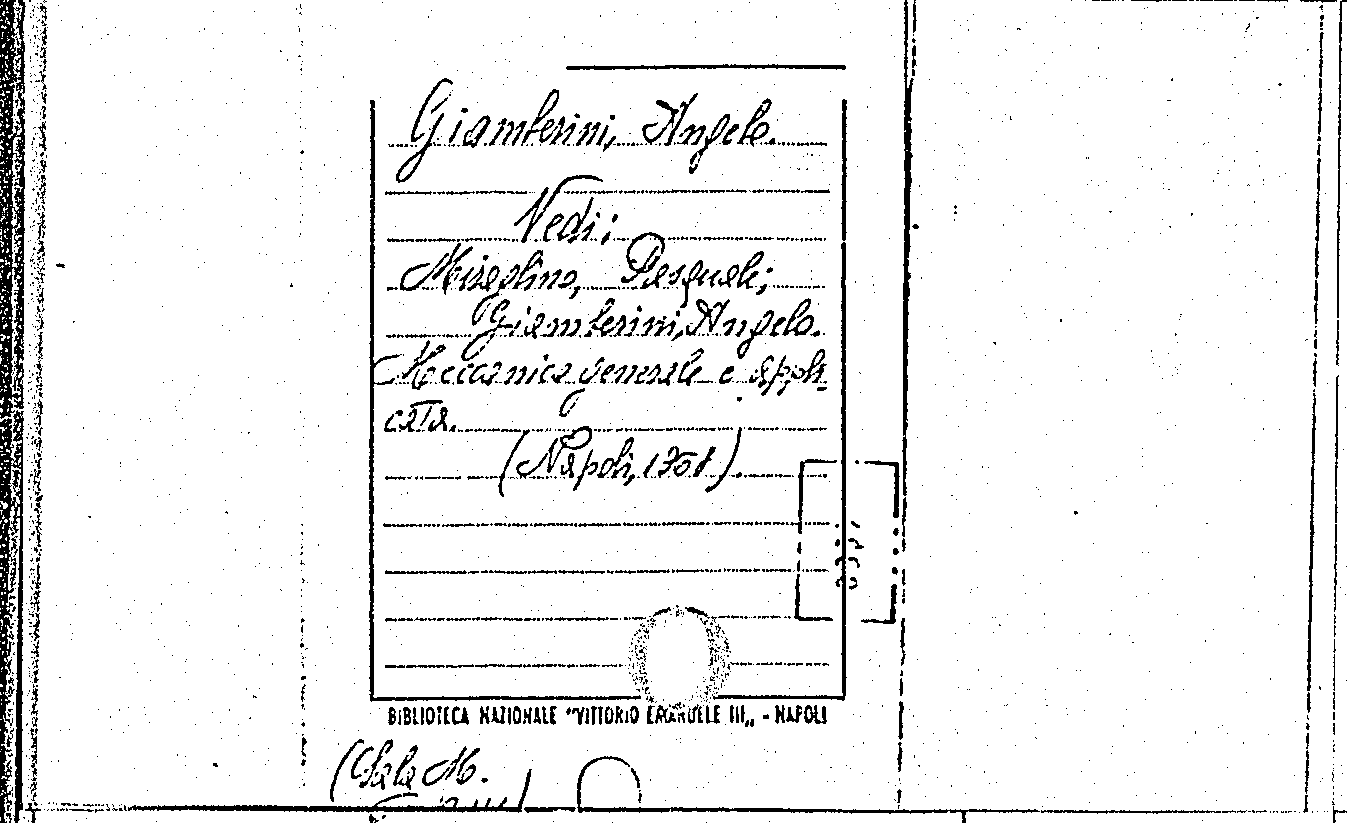 Giamberini, Angelo.
Vedi:
Miraglino, Pasquale;
Giamberini, Angelo.
Meccanica generale e appli-
cata.
(Napoli, 1958).
BIBLIOTECA NAZIONALE "VITTORIO EMANUELE III„ - NAPOLI
(Sala M.